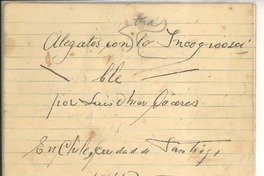 otras
Alegatos con Lo Incognosci
ble
por Luis Omar Cáceres.
En Chile, ciudad de Santiago